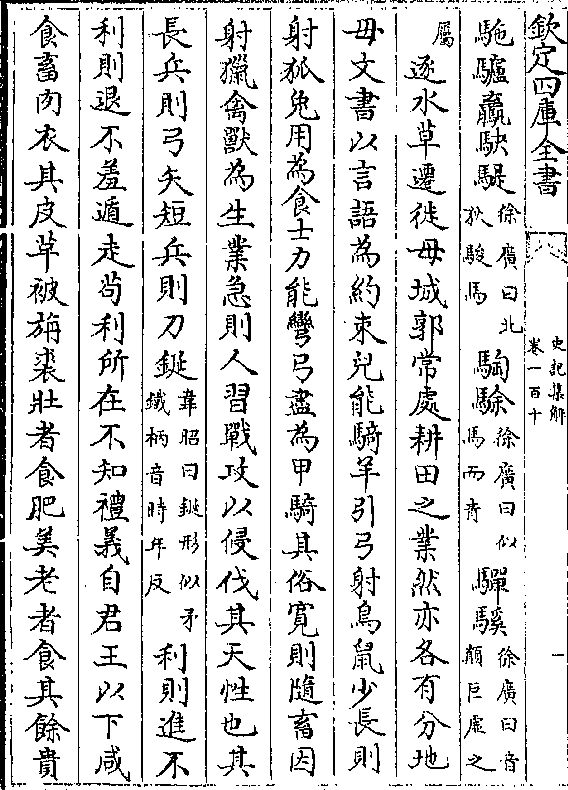 欽定四庫全書
史記集解
卷一百十
一
駞驢驘駃騠徐廣曰北狄駿馬騊駼徐廣曰似馬而青驒騱徐廣曰音顛巨虛之
屬逐水草遷徙毋城郭常處耕田之業然亦各有分地
毋文書以言語為約束兒能騎羊引弓射鳥鼠少長則
射狐兔用為食士力能彎弓盡為甲騎其俗寛則隨畜因
射獵禽獸為生業急則人習戰攻以侵伐其天性也其
長兵則弓矢短兵則刀鋋韋昭曰鋋形似矛鐵柄音時年反利則進不
利則退不羞遁走茍利所在不知禮義自君王以下咸
食畜肉衣其皮革被旃裘壯者食肥美老者食其餘貴